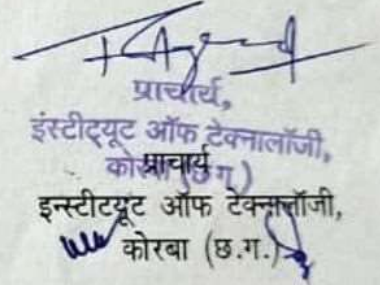 प्राचार्य,
इंस्टीट्यूट ऑफ टेक्नालॉजी,
कोरबा (छ ग)
प्राचार्य
इन्स्टीटयूट ऑफ टेक्नालॉजी,
कोरबा (छ.ग.)